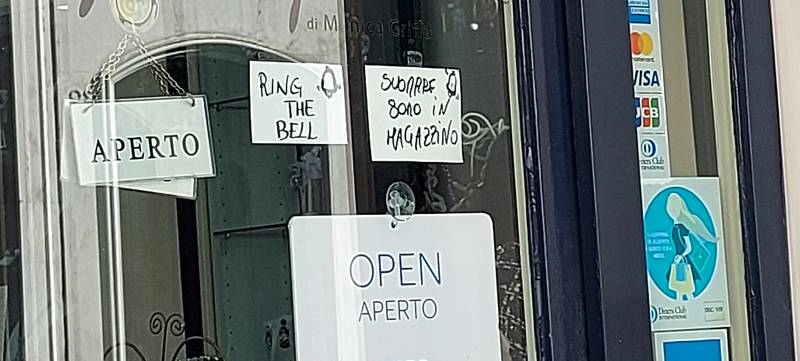 di Monica Griffa
APERTO
RING
THE
BELL
SUONARE
SONO IN
MAGAZZINO
OPEN
APERTO
AMERICAN
EXPRESS
mastercard
VISA
JCB
Diners Club
INTERNATIONAL
Diners Club
INTERNATIONAL
DISCOVER